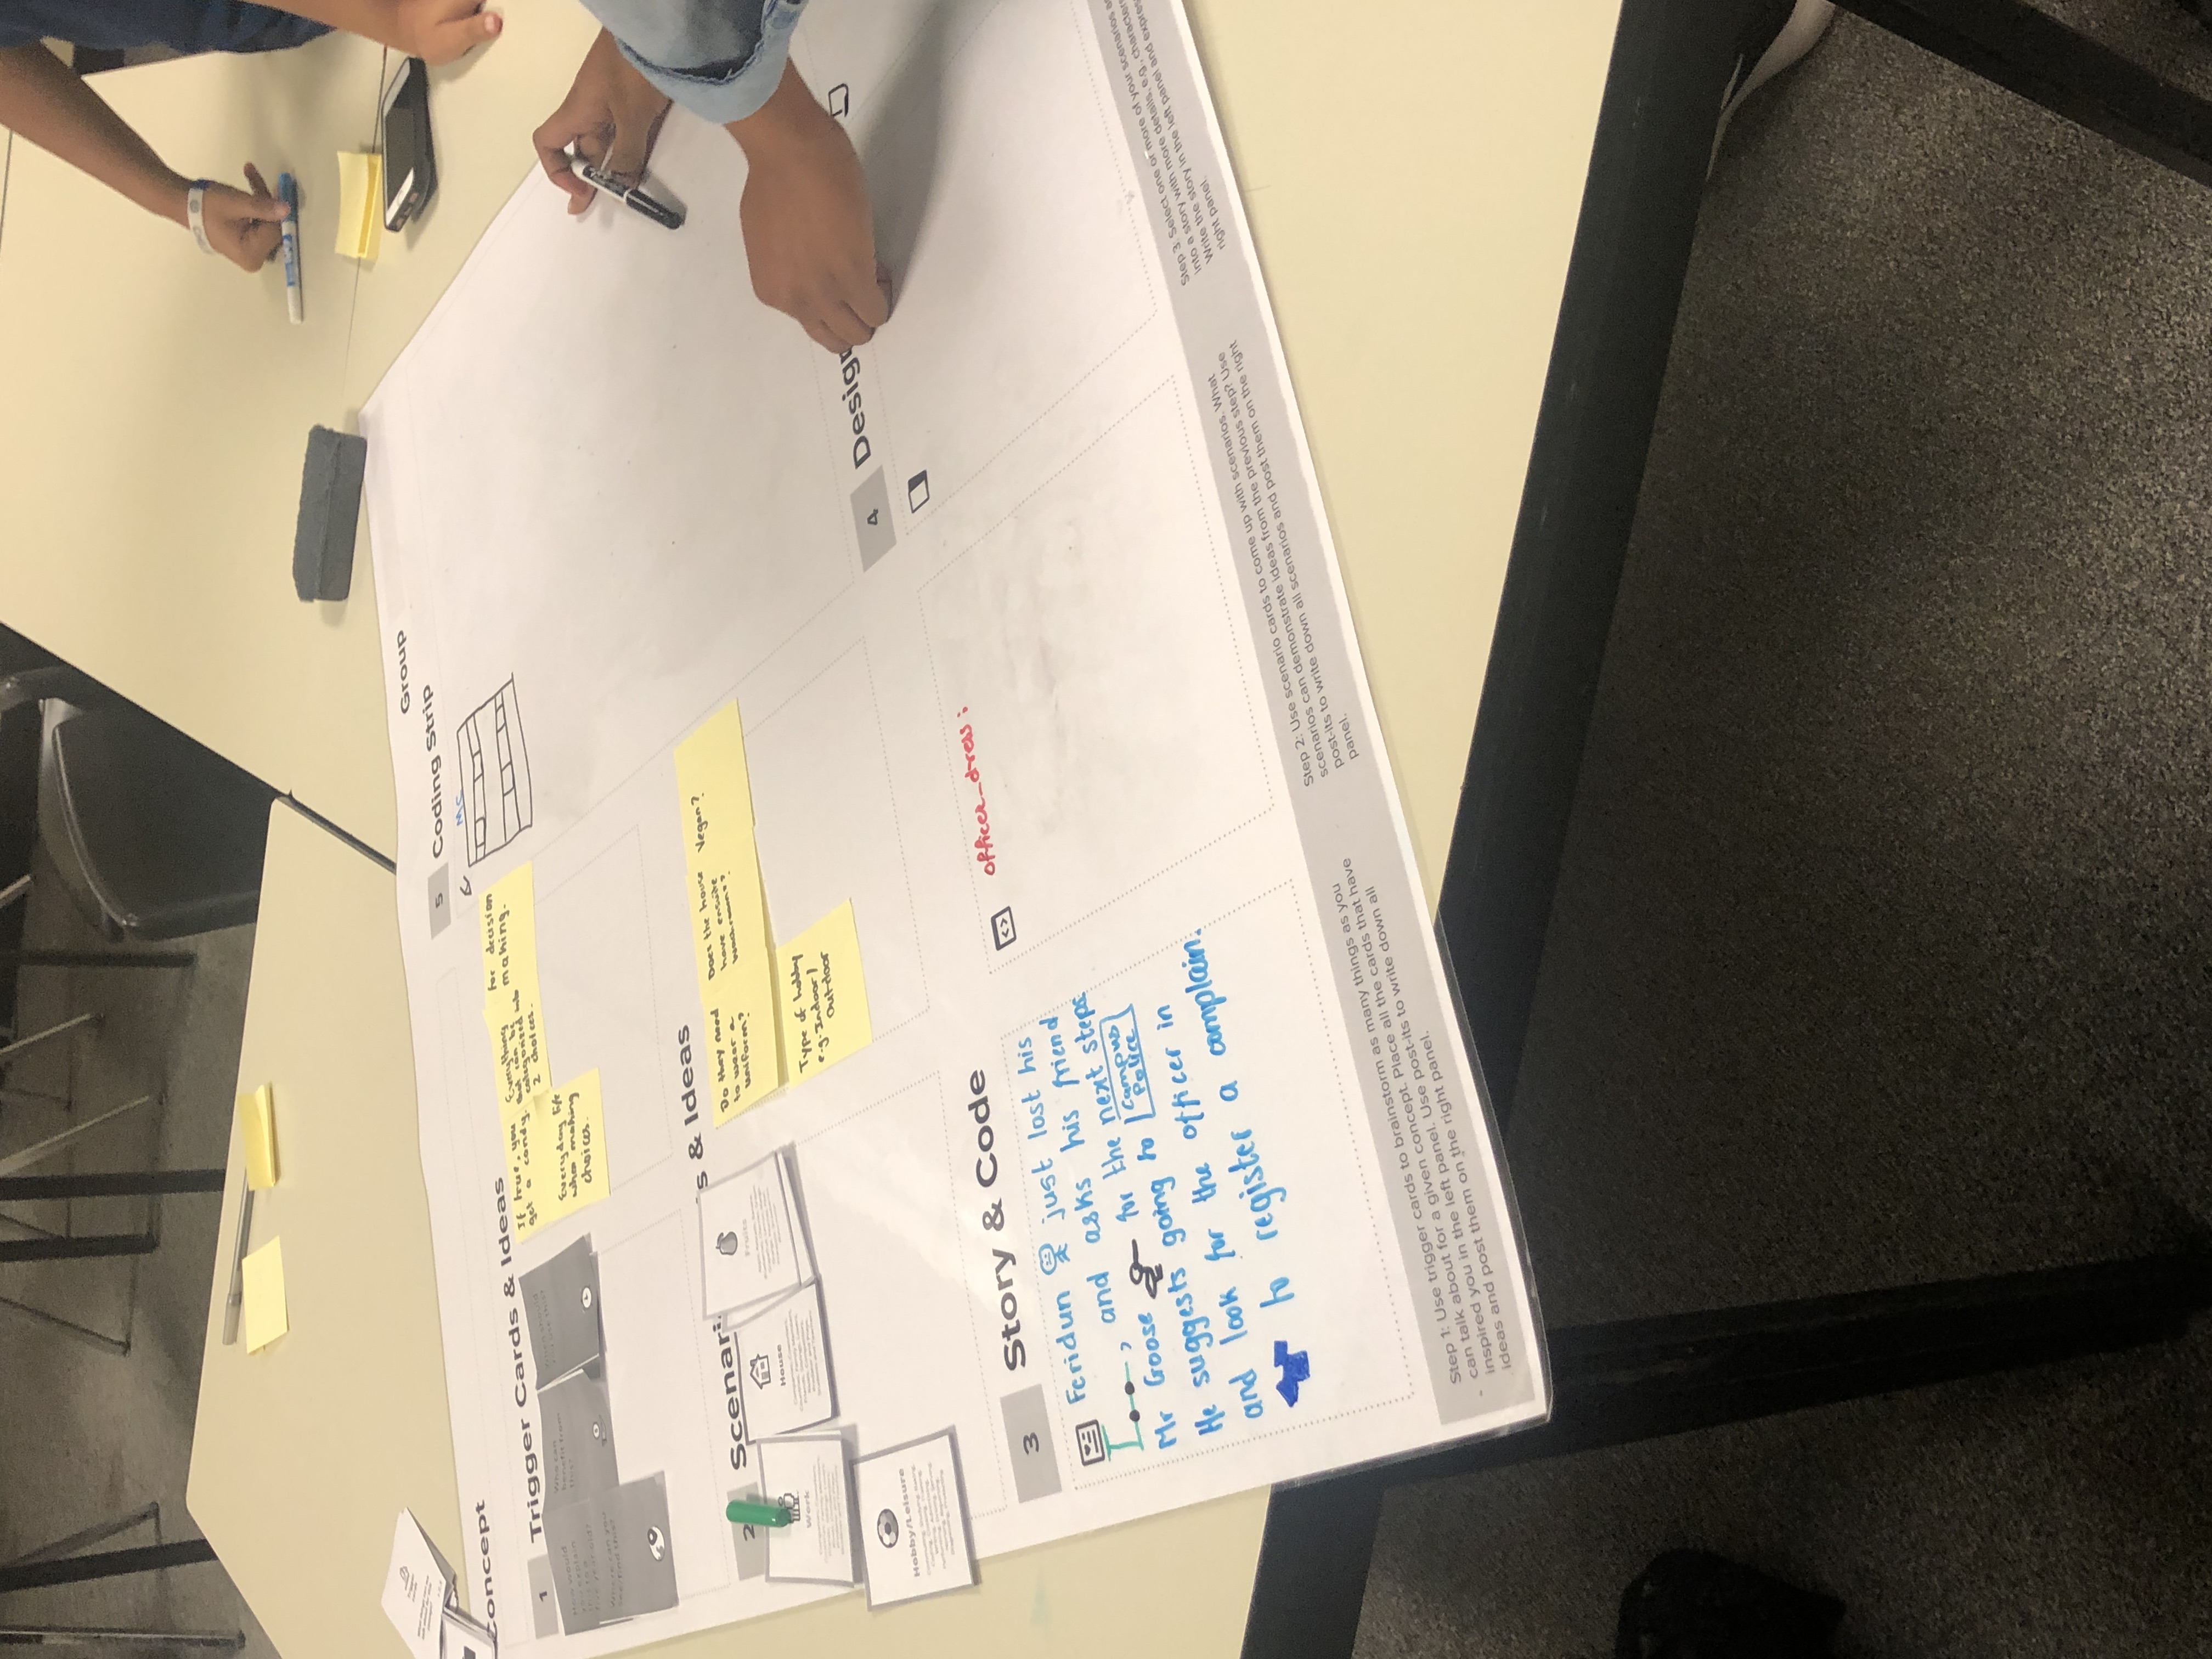 Group
5 Coding Strip
MC
Concept
1 Trigger Cards & Ideas
Trigger
cards
How would
you explain
this to a
year old?
Who can
benefit from
this?
When should
you use this?
Where can you
see/find this?
If true, you
get a candy.
Everything
that can be
categorized into
2 choices.
for decision
making.
Everyday life
when making
choices.
2 Scenari s & Ideas
Work
House
Fruits
Hobby/Leisure
Do they need
to wear a
uniform?
Does the house
have ensuite
washrooms?
Vegan?
Type of hobby
e.g. Indoor/
Outdoor
3 Story & Code
Feridun just lost his
, and asks his friend
Mr Goose for the next steps.
He suggests going to Campus
Police
and look for the officer in
to register a complain.
<>
officer_dress;
4 Design
Step 1: Use trigger cards to brainstorm as many things as you
can talk about for a given concept. Place all the cards that have
inspired you in the left panel. Use post-its to write down all
ideas and post them on the right panel.
Step 2: Use scenario cards to come up with scenarios. What
scenarios can demonstrate ideas from the previous step? Use
post-its to write down all scenarios and post them on the right
panel.
Step 3: Select one or more of your scenarios a
into a story with more details, e.g., character
Write the story in the left panel and expres
right panel.